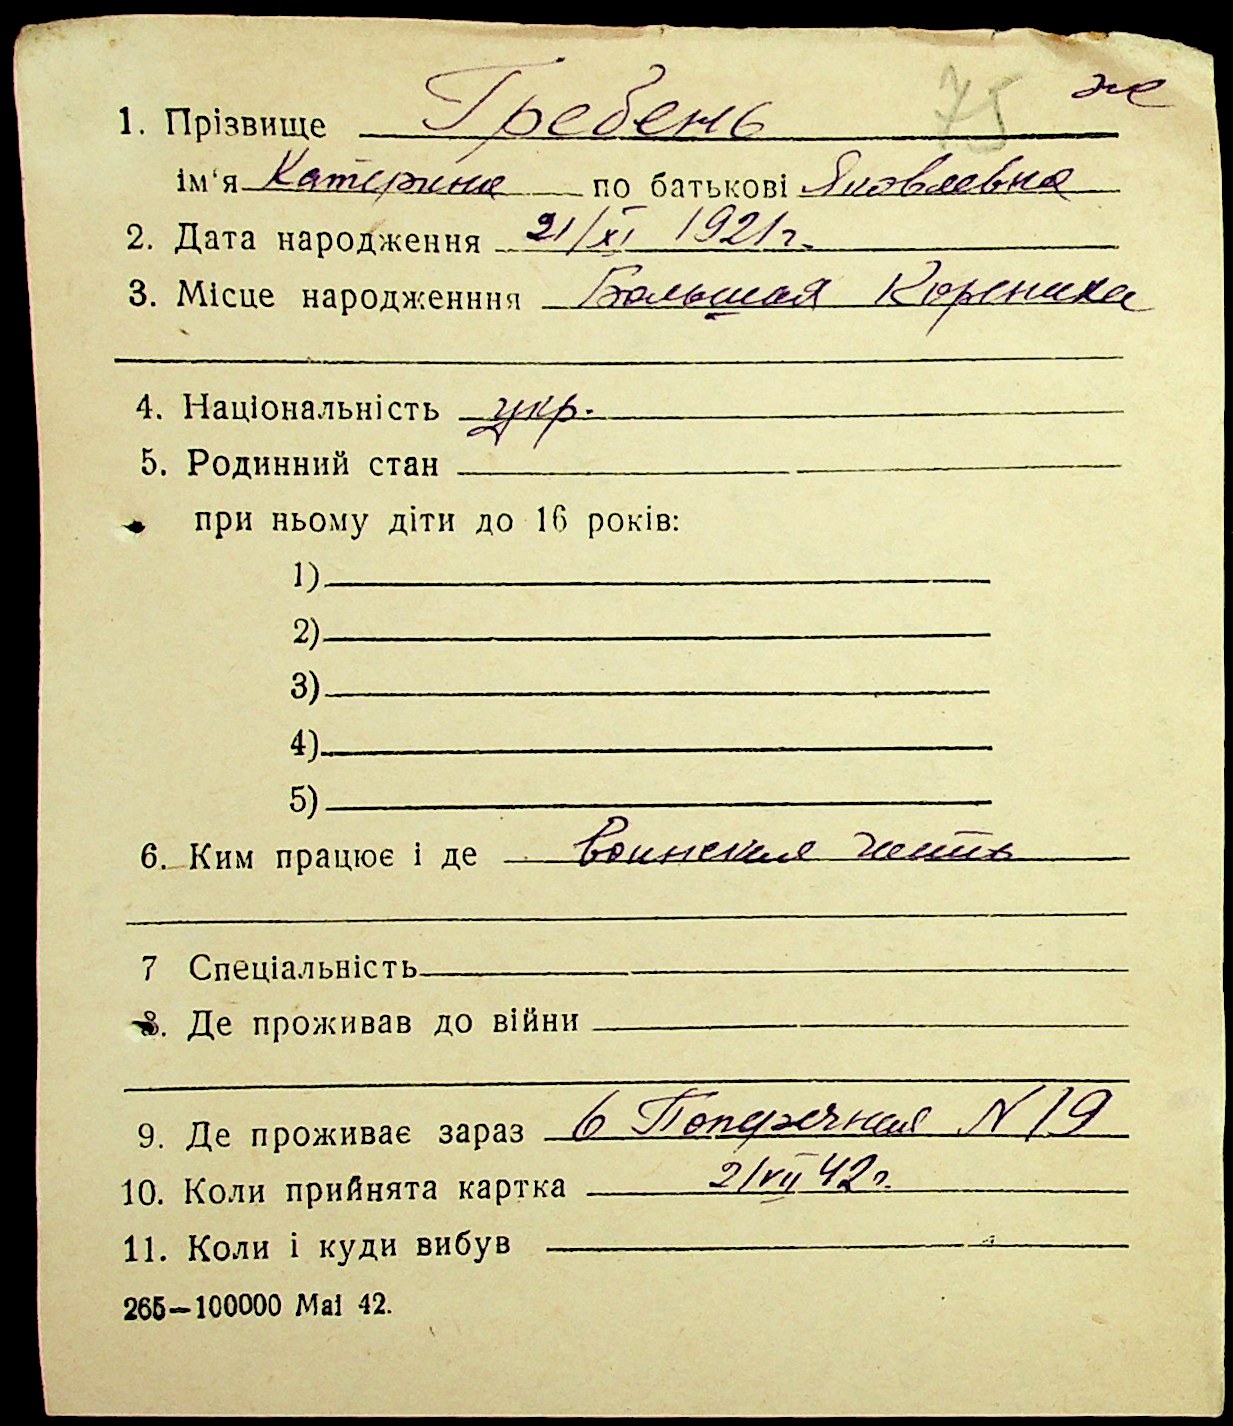 75 же
1. Прізвище Гребень
ім'я Катерина по батькові Яковлевна
2. Дата народження 21/XI 1921 г.
3. Місце народженння Большая Кореника
4. Національність укр.
5. Родинний стан
при ньому діти до 16 років:
1)
2)
3)
4)
5)
6. Ким працює і де Воинская часть
7 Спеціальність
8. Де проживав до війни
9. Де проживає зараз 6 Поперечная N 19
10. Коли прийнята картка 2/VII 42 г.
11. Коли і куди вибув
265—100000 Маі 42.